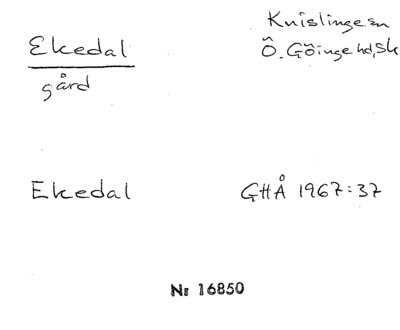 Knislinge sn
Ekedal
Ö. Göinge hd, Sk
gård
Ekedal
GHÅ 1967:37
Nr 16850